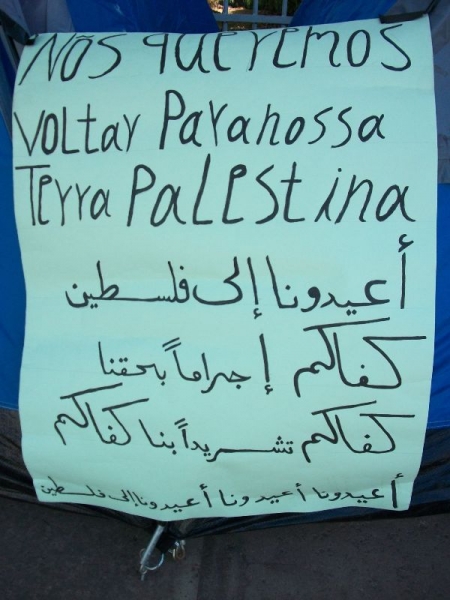 Nós queremos
voltar Paranossa
Terra Palestina
أعيدونا إلى فلسطين
كفاكم إجراماً بحقنا
كفاكم تشريداً بنا كفاكم
أعيدونا أعيدونا أعيدونا إلى فلسطين